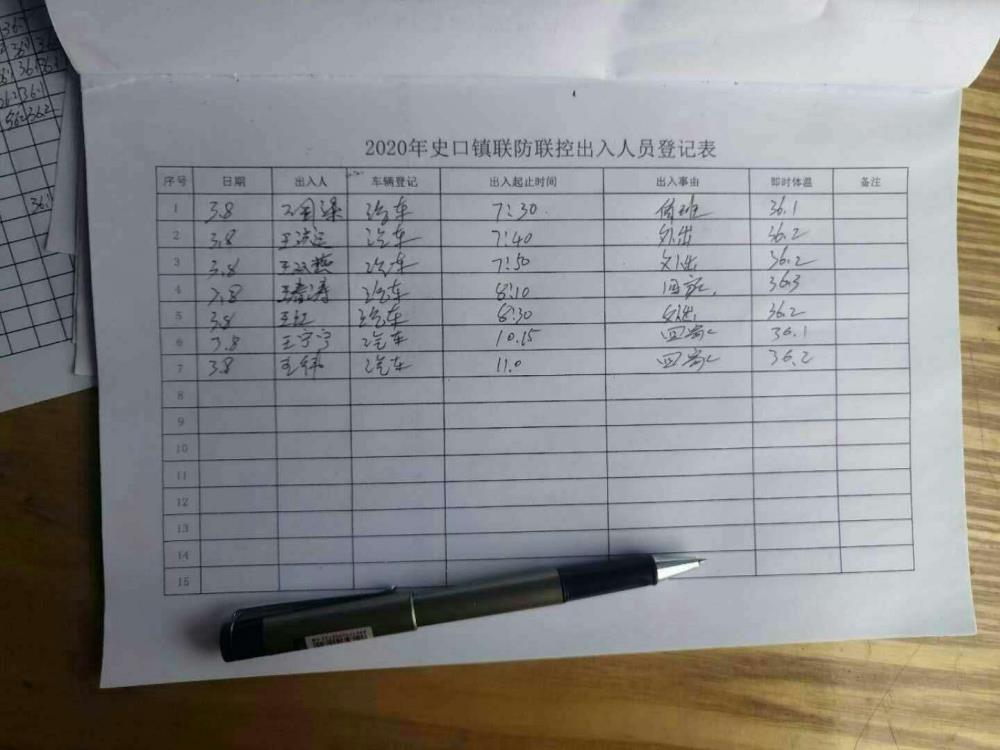 2020年史口镇联防联控出入人员登记表
序号 日期 出入人 车辆登记 出入起止时间 出入事由 即时体温 备注
1 3.8 汽车 7:30 值班 36.1
2 3.8 汽车 7:40 外出 36.2
3 3.8 汽车 7:50 外出 36.2
4 3.8 王春涛 汽车 8:10 36.3
5 3.8 王红 汽车 8:30 外出 36.2
6 3.8 王宁宁 汽车 10.15 回家 36.1
7 3.8 王伟 汽车 11.0 回家 36.2
8
9
10
11
12
13
14
15